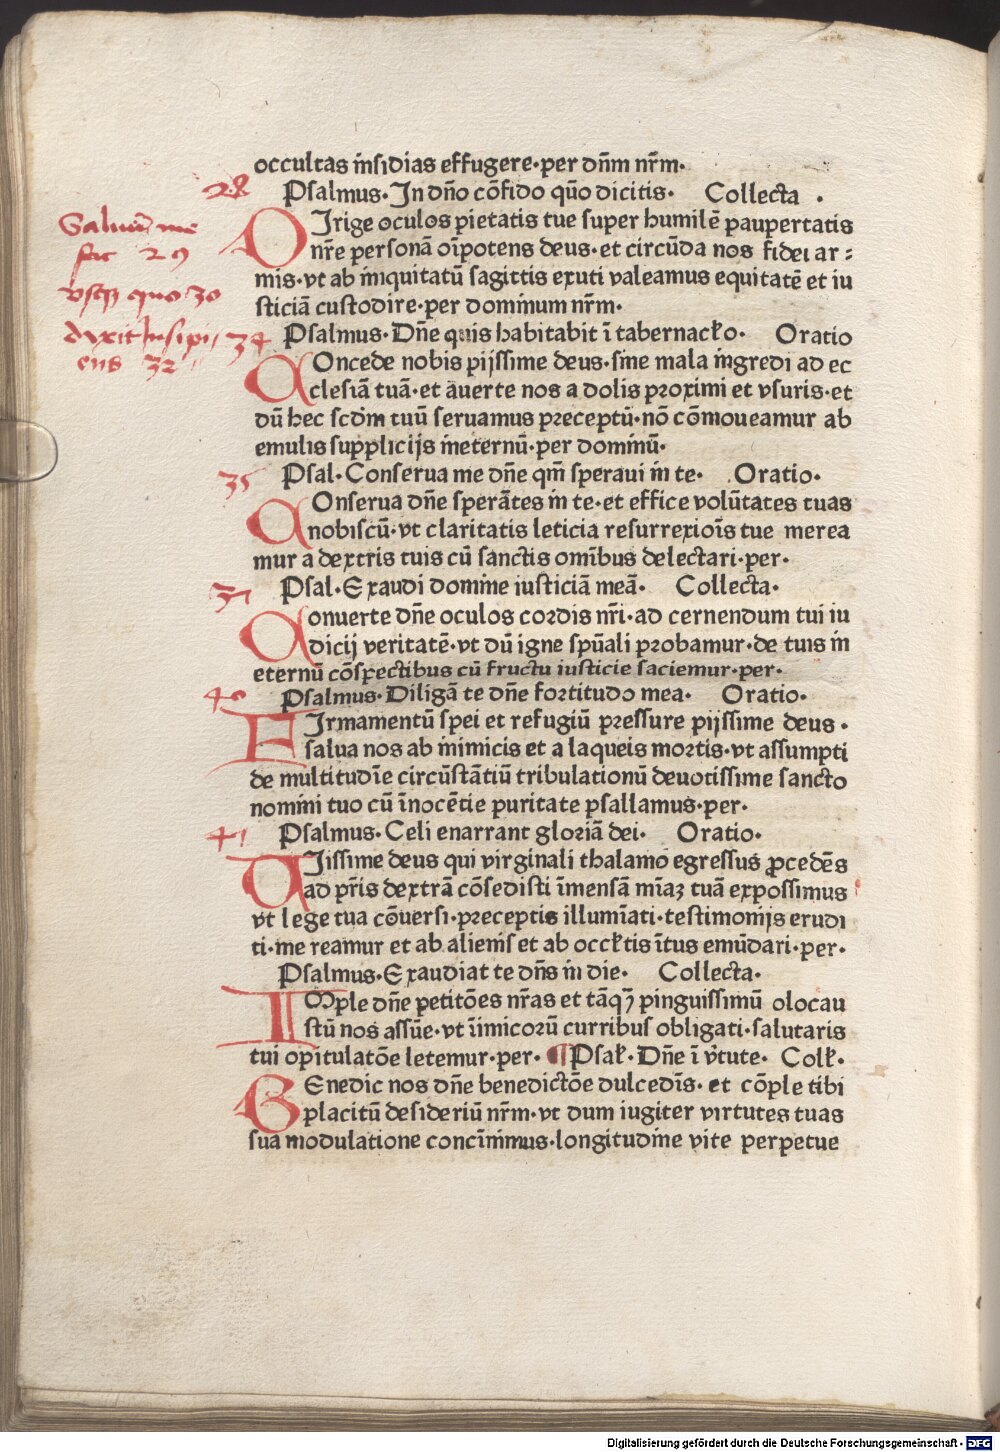 occultas insidias effugere·per dn̄m nr̄m·
28
Psalmus·In dn̄o cōfido qūo dicitis· Collecta ·
Saluū me
fac 29
vsq̄ quo 30
dixit insipi
ens 32
DIrige oculos pietatis tue super humilē paupertatis
nr̄e personā oīpotens deus·et circūda nos fidei ar⸗
mis·vt ab iniquitatū sagittis exuti valeamus equitatē et iu
sticiā custodire·per dominum nr̄m·
34
Psalmus·Dn̄e quis habitabit ī tabernacło· Oratio
COncede nobis pijssime deus·sine mala ingredi ad ec
clesiā tuā·et āuerte nos a dolis proximi et vsuris·et
dū hec scdm̄ tuū seruamus preceptū·nō cōmoueamur ab
emulis supplicijs ineternū·per dominū·
35
Psal·Conserua me dn̄e qm̄ speraui in te· Oratio·
COnserua dn̄e sperātes in te·et effice volūtates tuas
nobiscū·vt claritatis leticia resurrexiōis tue merea
mur a dextris tuis cū sanctis omībus delectari·per·
37
Psal·Exaudi domine iusticiā meā· Collecta·
Conuerte dn̄e oculos cordis nr̄i·ad cernendum tui iu
dicij veritatē·vt dū igne spūali probamur·de tuis in
eternū cōspectibus cū fructu iusticie saciemur·per·
40
Psalmus·Diligā te dn̄e fortitudo mea· Oratio·
FIrmamentū spei et refugiū pressure pijssime deus·
salua nos ab inimicis et a laqueis mortis·vt assumpti
de multitudīe circūstātiū tribulationū deuotissime sancto
nomini tuo cū īnocētie puritate psallamus·per·
41
Psalmus·Celi enarrant gloriā dei· Oratio·
PIissime deus qui virginali thalamo egressus ꝓcedēs
ad pr̄is dextrā cōsedisti īmensā mīaꝫ tuā expossimus
vt lege tua cōuersi·preceptis illumīati·testimonijs erudi
ti·me reamur et ab alienis et ab occłtis ītus emūdari·per·
Psalmus·Exaudiat te dn̄s in die· Collecta·
IMple dn̄e petitōes nr̄as et tāqꝫ pinguissimū olocau
stū nos assūe·vt īimicorū curribus obligati·salutaris
tui opitulatōe letemur·per· ¶Psał·Dn̄e ī v̄tute· Colł·
BEnedic nos dn̄e benedictōe dulcedīs· et cōple tibi
placitū desideriū nr̄m·vt dum iugiter virtutes tuas
sua modulatione concīnimus·longitudine vite perpetue
Digitalisierung gefördert durch die Deutsche Forschungsgemeinschaft - DFG